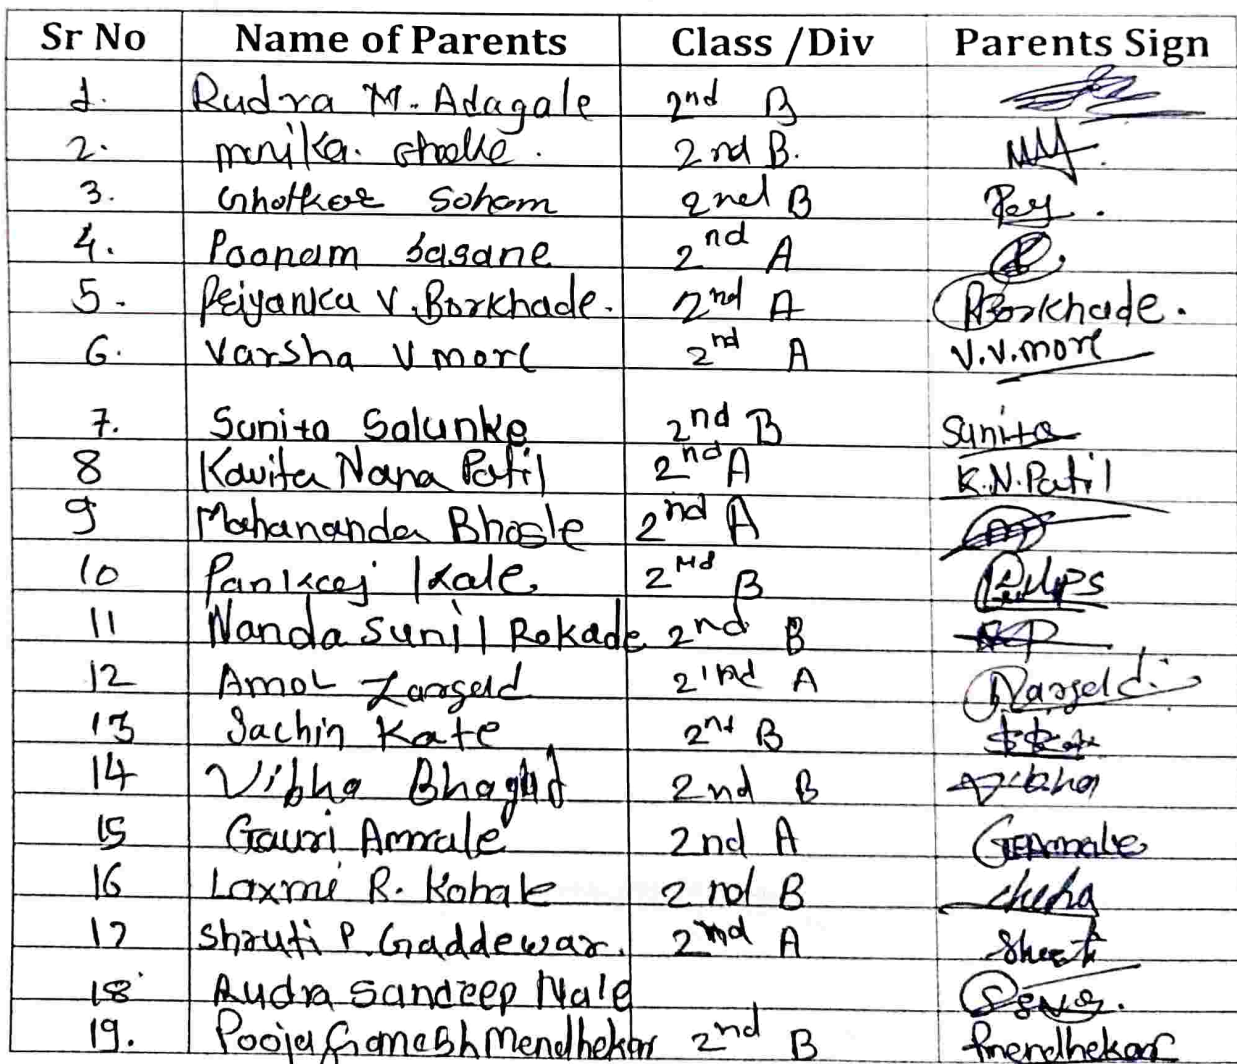 Sr No Name of Parents Class /Div Parents Sign
1. Rudra M. Adagale 2nd B
2. 2nd B.
3. Ghotkar Soham 2nd B
4. Poonam Sasane 2nd A
5. Priyanka V. Borkhade. 2nd A PBorkhade.
6. Varsha V more 2nd A V.V.more
7. Sunita Salunke 2nd B Sunita
8 Kavita Nana Patil 2nd A K.N.Patil
9 Mahananda Bhosle 2nd A
10 Pankaj Kale 2nd B
11 Nanda Sunil Rokade 2nd B
12 Amol 2nd A
13 Sachin Kate 2nd B
14 Vibha 2nd B Vibha
15 Gauri Amrale 2nd A GAmrale
16 Laxmi R. Kohale 2nd B
17 Shruti P. Gaddewar. 2nd A
18 Rudra Sandeep Nale
19. Pooja Ganesh Mendhekar 2nd B Pmendhekar